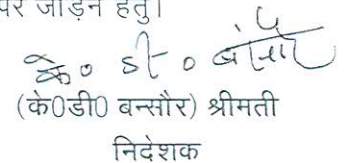 पर जोड़ने हेतु।
के० डी० बंसौर
(के0डी0 बन्सौर) श्रीमती
निदेशक